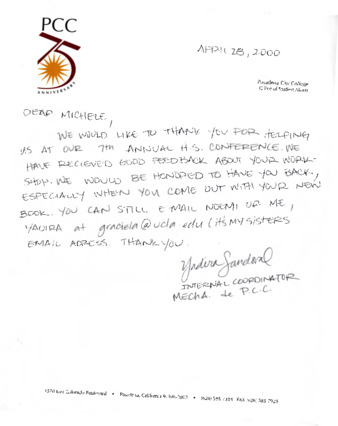 PCC
75
ANNIVERSARY
APRIL 28, 2000
Pasadena City College
Office of Student Affairs
DEAR MICHELE,
WE WOULD LIKE TO THANK YOU FOR HELPING
US AT OUR 7TH ANNUAL H.S. CONFERENCE. WE
HAVE RECIEVED GOOD FEEDBACK ABOUT YOUR WORK-
SHOP. WE WOULD BE HONORED TO HAVE YOU BACK,
ESPECIALLY WHEN YOU COME OUT WITH YOUR NEW
BOOK. YOU CAN STILL E MAIL NOEMI OR ME,
YADIRA at graciela@ucla.edu (its MY SISTERS
EMAIL ADRESS. THANK YOU.
Yadira Sandoval
INTERNAL COORDINATOR
MECHA. de P.C.C.
1570 East Colorado Boulevard • Pasadena, California